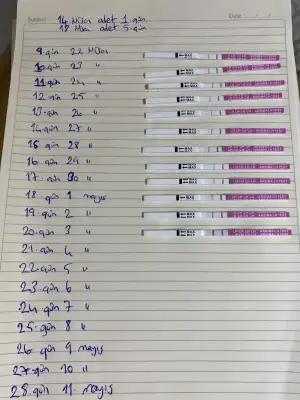 14 Nisan adet 1. gün
18 Nisan adet 5. gün
9. gün 22 Nisan
10. gün 23 "
11. gün 24 "
12. gün 25 "
13. gün 26 "
14. gün 27 "
15. gün 28 "
16. gün 29 "
17. gün 30 "
18. gün 1 mayıs
19. gün 2 "
20. gün 3 "
21. gün 4 "
22. gün 5 "
23. gün 6 "
24. gün 7 "
25. gün 8 "
26. gün 9 mayıs
27. gün 10 "
28. gün 11. mayıs